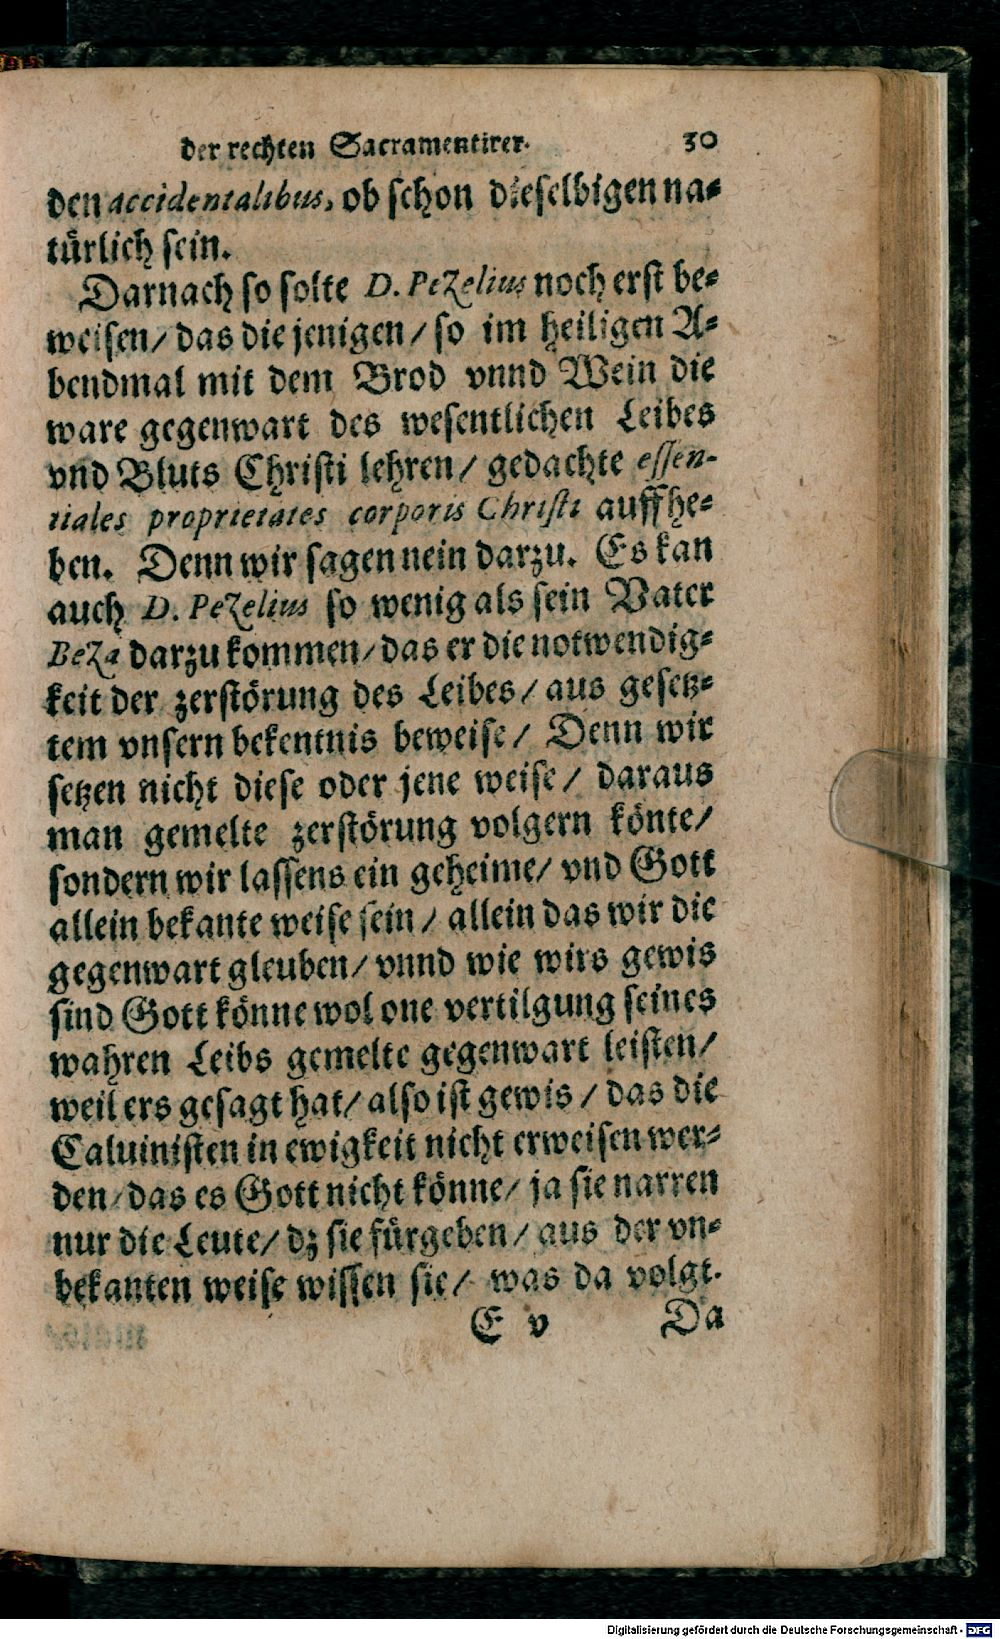 der rechten Sacramentirer. 30
den accidentalibus, ob schon dieselbigen na⸗
türlich sein.
Darnach so solte D. Pezelius noch erst be⸗
weisen/ das die jenigen/ so im heiligen A⸗
bendmal mit dem Brod vnnd Wein die
ware gegenwart des wesentlichen Leibes
vnd Bluts Christi lehren/ gedachte essen-
tiales proprietates corporis Christi auffhe⸗
ben. Denn wir sagen nein darzu. Es kan
auch D. Pezelius so wenig als sein Vater
Beza darzu kommen/ das er die notwendig⸗
keit der zerstörung des Leibes/ aus gesetz⸗
tem vnsern bekentnis beweise/ Denn wir
setzen nicht diese oder jene weise/ daraus
man gemelte zerstörung volgern könte/
sondern wir lassens ein geheime/ vnd Gott
allein bekante weise sein/ allein das wir die
gegenwart gleuben/ vnnd wie wirs gewis
sind Gott könne wol one vertilgung seines
wahren Leibs gemelte gegenwart leisten/
weil ers gesagt hat/ also ist gewis/ das die
Caluinisten in ewigkeit nicht erweisen wer⸗
den/ das es Gott nicht könne/ ja sie narren
nur die Leute/ dz sie fürgeben/ aus der vn⸗
bekanten weise wissen sie/ was da volgt.
E v Da
Digitalisierung gefördert durch die Deutsche Forschungsgemeinschaft - DFG